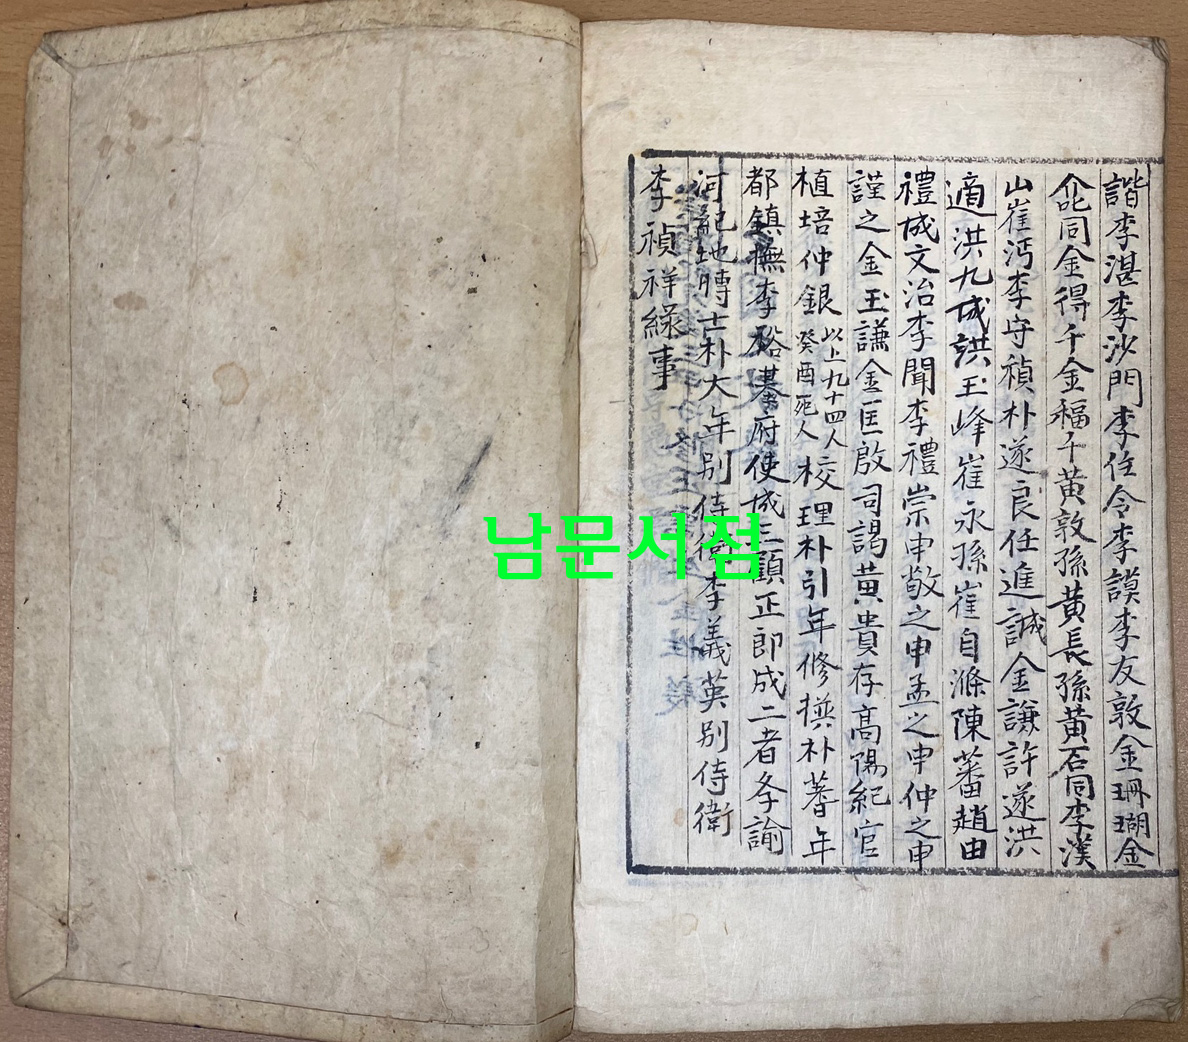 諧李湛李沙門李住令李謨李友敦金珊瑚金
同金得千金福千黃敦孫黃長孫黃石同李漢
山崔沔李守禎朴遂良任進誠金謙許遂洪
適洪九成洪玉峰崔永孫崔自滌陳蕃趙由
禮成文治李聞李禮崇申敬之申孟之申仲之申
謹之金玉謙金匡啟司謁黃貴存高陽紀官
植培仲銀以上九十四人癸酉死人校理朴引年修撰朴蓍年
都鎮撫李裕基府使成三顧正郎成二者李諭
河紀地時古朴大年別侍衛李義英別侍衛
李禎祥綠事
남문서점